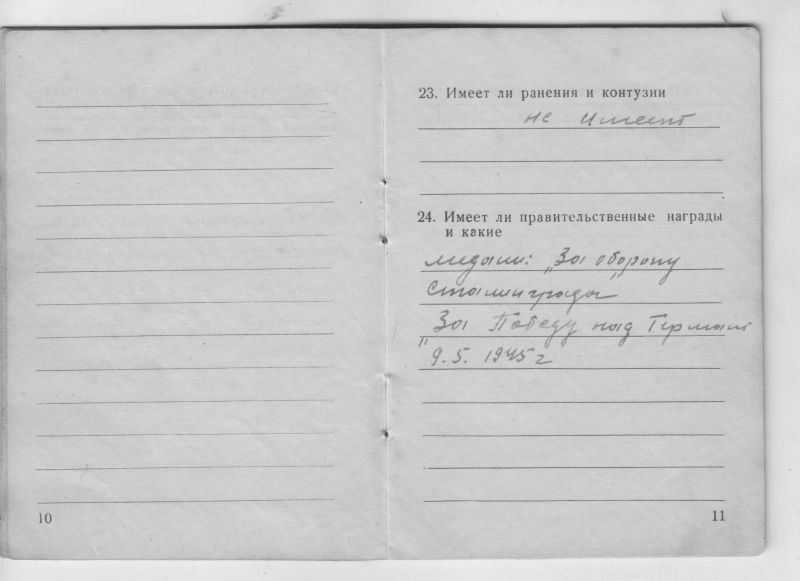 23. Имеет ли ранения и контузии
не имеет
24. Имеет ли правительственные награды
и какие
медали: „За оборону
Сталинграда
„За Победу над Герман
9.5. 1945 г
10
11